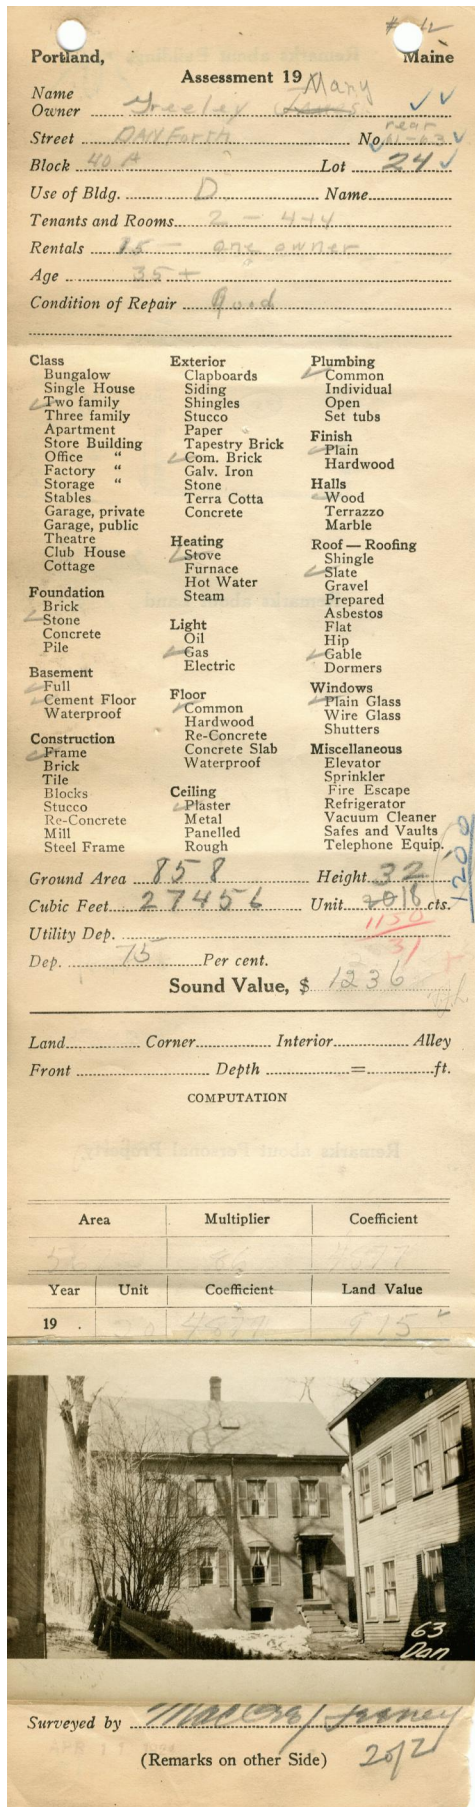 Portland, Maine
Assessment 19
Name Mary
Owner Greeley James
Street DANForth No. rear 61-63
Block 40 A Lot 24
Use of Bldg. D Name
Tenants and Rooms 2 - 4+4
Rentals 15 - one owner
Age 35 +
Condition of Repair Good
Class
Bungalow
Single House
Two family
Three family
Apartment
Store Building
Office "
Factory "
Storage "
Stables
Garage, private
Garage, public
Theatre
Club House
Cottage
Foundation
Brick
Stone
Concrete
Pile
Basement
Full
Cement Floor
Waterproof
Construction
Frame
Brick
Tile
Blocks
Stucco
Re-Concrete
Mill
Steel Frame
Exterior
Clapboards
Siding
Shingles
Stucco
Paper
Tapestry Brick
Com. Brick
Galv. Iron
Stone
Terra Cotta
Concrete
Heating
Stove
Furnace
Hot Water
Steam
Light
Oil
Gas
Electric
Floor
Common
Hardwood
Re-Concrete
Concrete Slab
Waterproof
Ceiling
Plaster
Metal
Panelled
Rough
Plumbing
Common
Individual
Open
Set tubs
Finish
Plain
Hardwood
Halls
Wood
Terrazzo
Marble
Roof — Roofing
Shingle
Slate
Gravel
Prepared
Asbestos
Flat
Hip
Gable
Dormers
Windows
Plain Glass
Wire Glass
Shutters
Miscellaneous
Elevator
Sprinkler
Fire Escape
Refrigerator
Vacuum Cleaner
Safes and Vaults
Telephone Equip.
1200
Ground Area 858 Height 32
Cubic Feet 27456 Unit 20 18 cts.
Utility Dep. 1150
31
Dep. 75 Per cent.
Sound Value, $ 1236
Land Corner Interior Alley
Front Depth = ft.
COMPUTATION
Area Multiplier Coefficient
56 86 4877
Year Unit Coefficient Land Value
19 . 20 4877 915
63
Dan
Surveyed by
(Remarks on other Side) 2 of 2